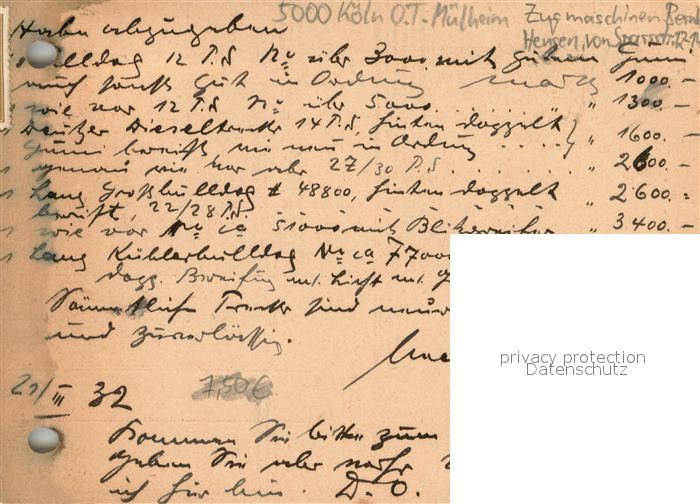 5000 Köln O.T.-Mülheim Zugmaschinen
Hengen, von
Habe abzugeben
Bulldog 12 P.S. No über 3000 mit guten Gummi
auch sonst gut in Ordnung Mark 1000.-
wie vor 12 P.S. No über 5000 . . . . " 1300.-
Deutzer Dieseltrecker 14 P.S., hinten doppelt " 1600.-
Gummi bereift wie neu in Ordnung . . . .
genau wie vor aber 27/30 P.S. . . . . . " 2600.-
Lanz Großbulldog # 48800, hinten doppelt " 2600.-
bereift, 22/28 P.S.
wie vor No ca 51000 mit " 3400.-
Lanz Kühlerbulldog No ca 77000
dopp. Bereifung m. Licht m.
Sämmtliche Trecker sind
und zuverlässig.
21/III 32 7,50€
Kommen Sie bitte zum
geben Sie aber vorher
ich hier bin. D. O.
privacy protection
Datenschutz